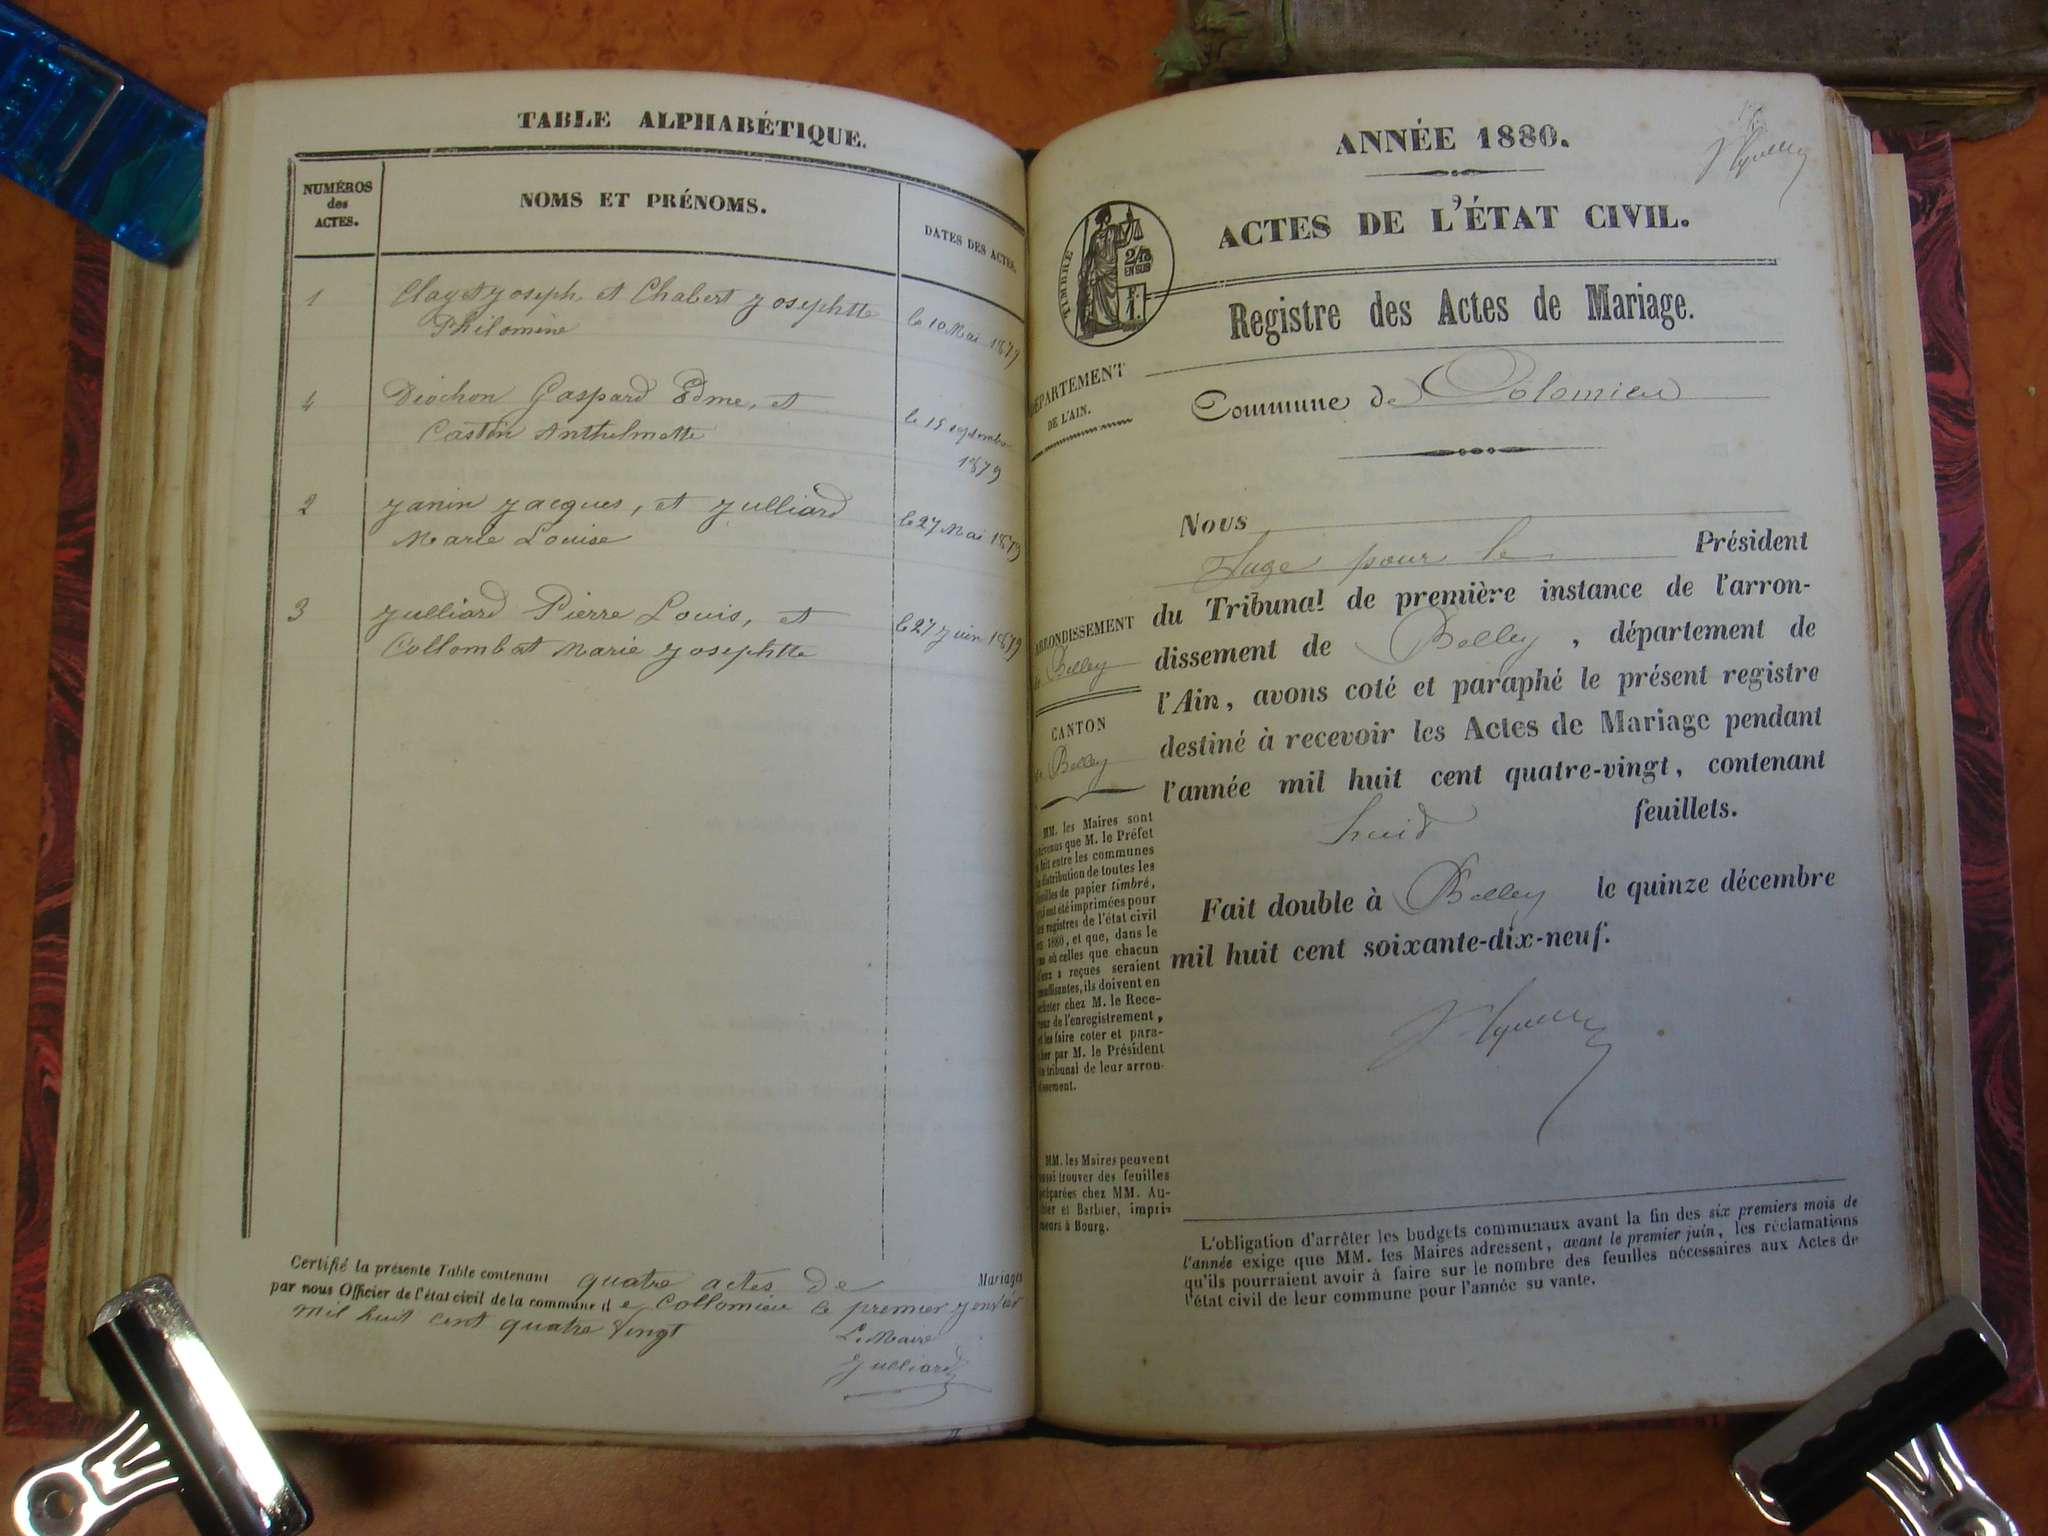 TABLE ALPHABÉTIQUE.
NUMÉROS
des
ACTES.
NOMS ET PRÉNOMS.
DATES DES ACTES.
1 Clayet Joseph et Chabert Josephtte le 10 Mai 1879
Philomène
4 Diochon Gaspard Edme, et le 15 septembre
Castin Anthelmette 1879
2 Janin Jacques, et Julliard le 27 Mai 1879
Marie Louise
3 Julliard Pierre Louis, et le 27 juin 1879
Collombat Marie Josephtte
Certifié la présente Table contenant quatre actes de Mariages
par nous Officier de l'état civil de la commune de Collomieu le premier janvier
mil huit cent quatre vingt
Le Maire
Julliard
ANNÉE 1880.
ACTES DE L'ÉTAT CIVIL.
TIMBRE
2/10
EN SUS
Registre des Actes de Mariage.
DÉPARTEMENT
DE L'AIN.
Commune de Colomieu
Nous
Juge pour le Président
du Tribunal de première instance de l'arron-
dissement de Belley, département de
l'Ain, avons coté et paraphé le présent registre
destiné à recevoir les Actes de Mariage pendant
l'année mil huit cent quatre-vingt, contenant
huit feuillets.
Fait double à Belley le quinze décembre
mil huit cent soixante-dix-neuf.
ARRONDISSEMENT
de Belley
CANTON
de Belley
MM. les Maires sont
prévenus que M. le Préfet
a fait entre les communes
la distribution de toutes les
feuilles de papier timbré,
qui ont été imprimées pour
les registres de l'état civil
en 1880, et que, dans le
cas où celles que chacun
d'eux a reçues seraient
insuffisantes, ils doivent en
acheter chez M. le Rece-
veur de l'enregistrement,
et les faire coter et para-
pher par M. le Président
du tribunal de leur arron-
dissement.
MM. les Maires peuvent
aussi trouver des feuilles
préparées chez MM. Au-
thier et Barbier, impri-
meurs à Bourg.
L'obligation d'arrêter les budgets communaux avant la fin des six premiers mois de
l'année exige que MM. les Maires adressent, avant le premier juin, les réclamations
qu'ils pourraient avoir à faire sur le nombre des feuilles nécessaires aux Actes de
l'état civil de leur commune pour l'année su vante.